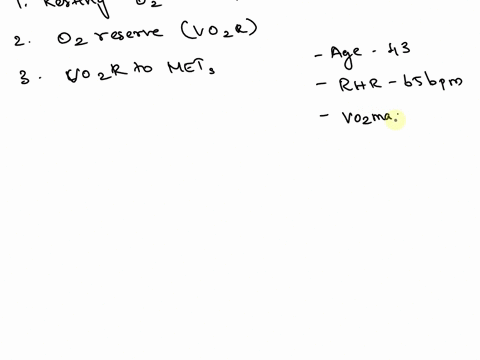 1. Resting O2
2. O2 reserve (VO2R)
3. VO2R to METs
- Age - 43
- RHR - 65bpm
- VO2ma